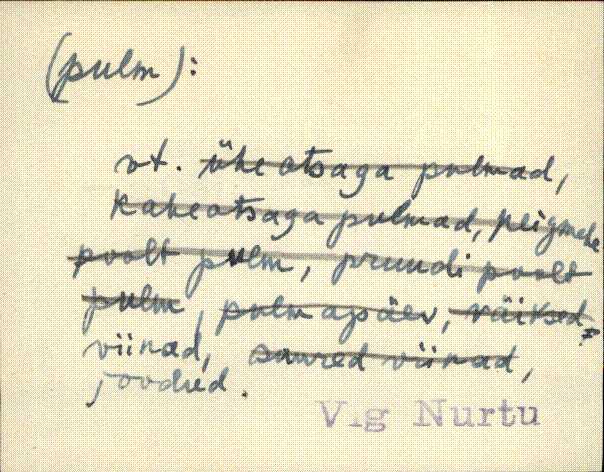 (pulm):
vt. üheotsaga pulmad,
kaheotsaga pulmad, peigmehe
poolt pulm, pruudi poolt
pulm, pulmapäev, väiksed
viinad, suured viinad,
joodud.
Vig Nurtu